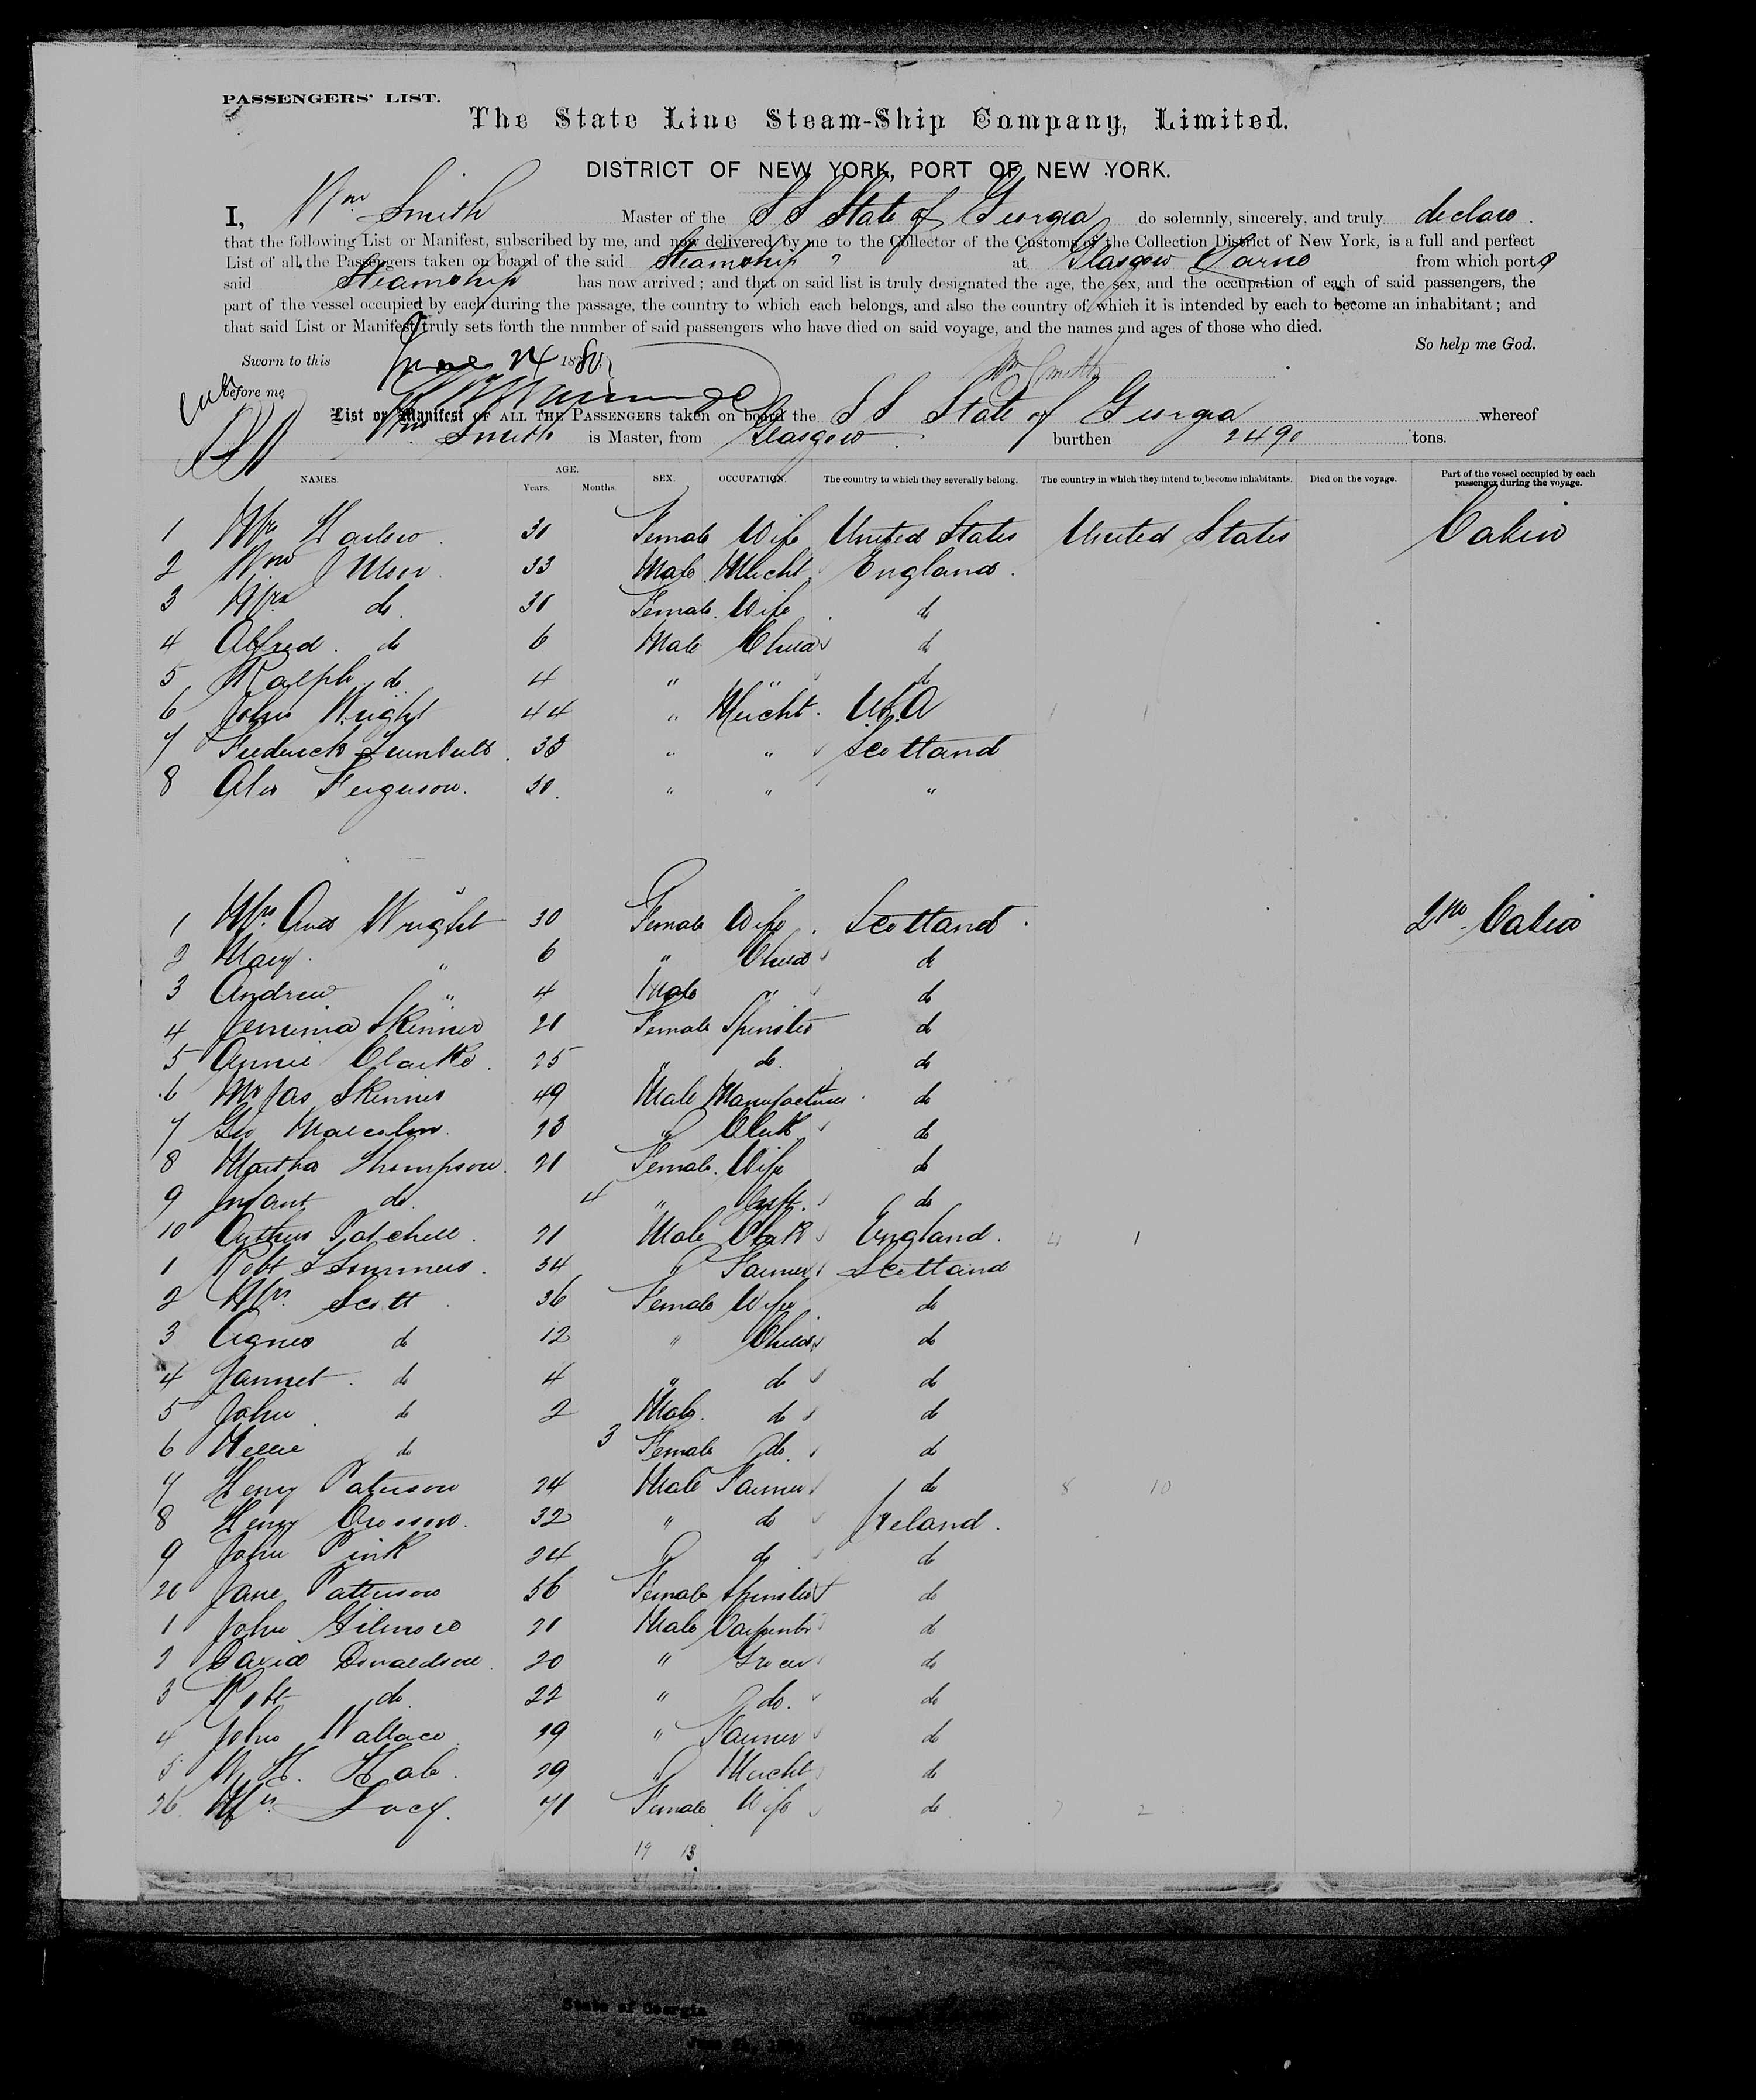 PASSENGERS' LIST.
The State Line Steam-Ship Company, Limited.
DISTRICT OF NEW YORK, PORT OF NEW YORK.
I, Wm Smith Master of the SS State of Georgia do solemnly, sincerely, and truly declare.
that the following List or Manifest, subscribed by me, and now delivered by me to the Collector of the Customs of the Collection District of New York, is a full and perfect
List of all the Passengers taken on board of the said Steamship at Glasgow Larne from which port
said Steamship has now arrived; and that on said list is truly designated the age, the sex, and the occupation of each of said passengers, the
part of the vessel occupied by each during the passage, the country to which each belongs, and also the country of which it is intended by each to become an inhabitant; and
that said List or Manifest truly sets forth the number of said passengers who have died on said voyage, and the names and ages of those who died.
So help me God.
Sworn to this June 24 1880
Wm Smith
before me
List or Manifest OF ALL THE PASSENGERS taken on board the SS State of Georgia whereof
Wm Smith is Master, from Glasgow burthen 2490 tons.
NAMES. AGE. Years. Months. SEX. OCCUPATION. The country to which they severally belong. The country in which they intend to become inhabitants. Died on the voyage. Part of the vessel occupied by each passenger during the voyage.
1 Mrs 31 Female Wife United States United States Cabin
2 Wm 33 Male Mercht England.
3 Mrs do. 31 Female Wife do
4 Alfred do 6 Male Child do
5 Ralph do 4 " " do
6 John Wright 44 " Mercht. U.S.A
7 Frederick Turnbull 33 " " Scotland
8 Alex Ferguson. 30. " " "
1 Mrs And Wright 30 Female Wife. Scotland. 2nd Cabin
2 Mary " 6 " Child do
3 Andrew " 4 Male " do
4 Jemima Skinner 21 Female Spinster do
5 Annie Clarke. 25 " do. do
6 Mr Jas Skinner 49 Male Manufacturer do
7 Geo Malcolm. 23 " Clerk do
8 Martha Thompson. 21 Female. Wife do
9 Infant do. 4 " Inft. do
10 Arthur Patchell. 21 Male Clerk England. 4 1
1 Robt Simmers. 34 " Farmer Scotland
2 Mrs. Scott 36 Female Wife do
3 Agnes do 12 " Child do
4 Jannet. do 4 " do do
5 John do 2 Male. do do
6 Nellie do 3 Female do. do
7 Henry Paterson 24 Male Farmer do 8 10
8 Henry 32 " do Ireland.
9 John Pink 24 " do do
20 Jane Patterson 56 Female Spinster do
1 John Gilmore 21 Male Carpenter do
2 David Donaldson. 20 " Grocer do
3 Robt do. 22 " do. do
4 John Wallace 19 " Farmer do
5 W. H. 29 " Mercht do
26. Mrs Lucy. 71 Female Wife do 7 2
19 13
State of Georgia